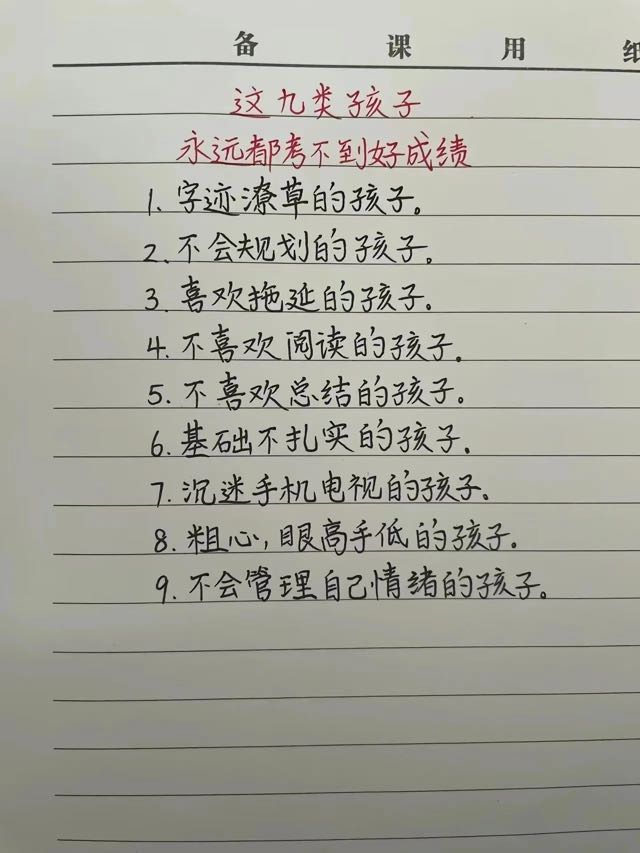 备课用纸
这九类孩子
永远都考不到好成绩
1. 字迹潦草的孩子。
2. 不会规划的孩子。
3. 喜欢拖延的孩子.
4. 不喜欢阅读的孩子.
5. 不喜欢总结的孩子.
6. 基础不扎实的孩子.
7. 沉迷手机电视的孩子.
8. 粗心,眼高手低的孩子.
9. 不会管理自己情绪的孩子。